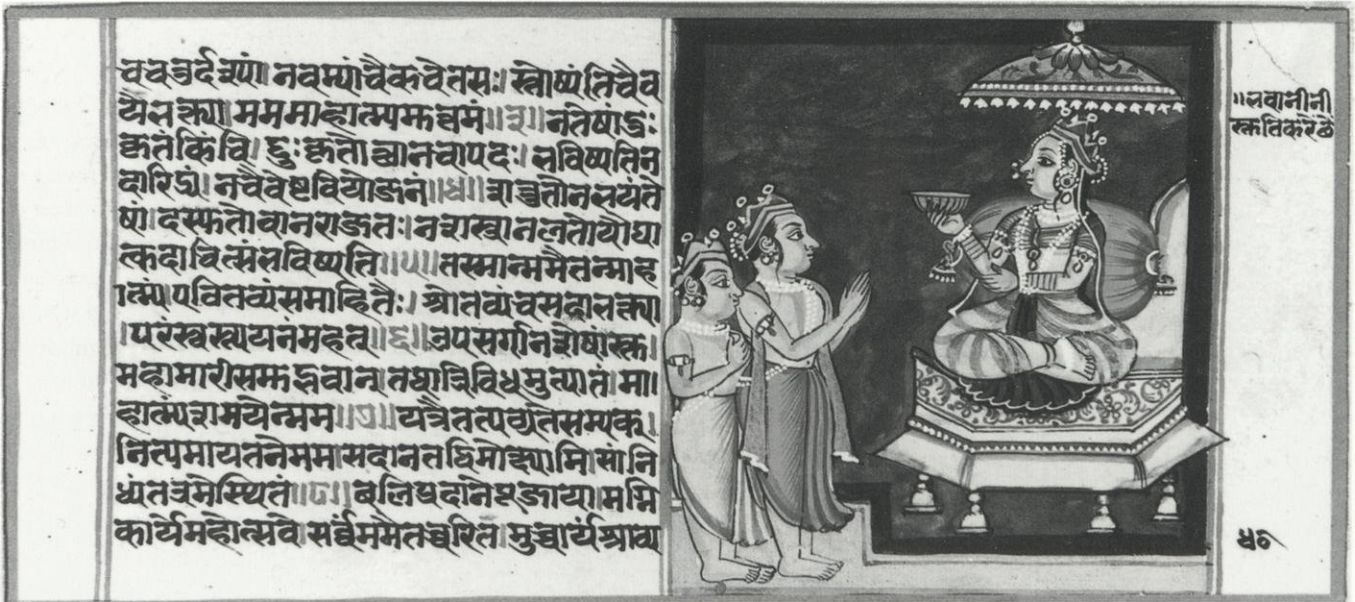 चचतुर्दश्यां। नवम्यांचैकचेतसः। स्त्रोष्यंतिचैव
येभक्त्या। मममाहात्म्यमुत्तमं॥३॥ नतेषांदुः
कृतंकिंचि। द्दुःकृतोत्थानचापदः। भविष्यतिन
दारिद्र्यं। नचैवेष्टवियोजनं॥४॥ शत्रुतोनभयंते
षां। दस्युतोवानराजतः। नशस्त्रानलतोयौघा
त्कदाचित्संभविष्यति॥५॥ तस्मान्ममैतन्माह
ात्म्यं। पठितव्यंसमाहितैः। श्रोतव्यंचसदाभक्त्या
।परंस्वस्त्ययनंमहत्॥६॥ उपसर्गानशेषांस्तु।
महामारीसमुद्भवान्। तथात्रिविधमुत्पातं। मा।
हात्म्यंशमयेन्मम॥७॥ यत्रैतत्पठ्यतेसम्यक।
नित्यमायतनेमम। सदानतद्विमोक्ष्यामि। सांनि
ध्यंतत्रमेस्थितं॥८॥ बलिप्रदानेपूजाया। मग्नि
कार्येमहोत्सवे। सर्वंममैतच्चरित। मुच्चार्यंश्राव्य
॥भवानीनी
स्तुतिकरेछे